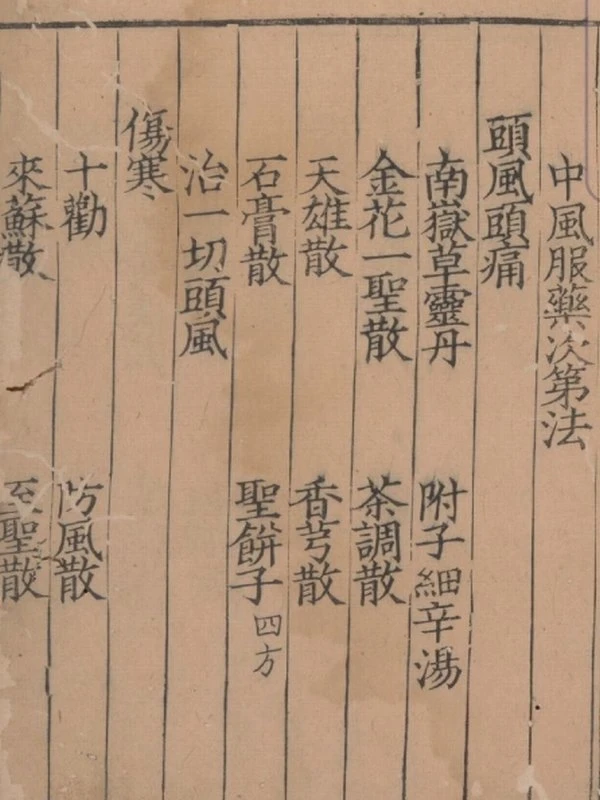 中風服藥次第法
頭風頭痛
南嶽草靈丹 附子細辛湯
金花一聖散 茶調散
天雄散 香芎散
石膏散 聖餅子四方
治一切頭風
傷寒
十勸 防風散
來蘇散 至聖散